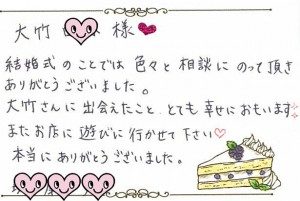 大竹 様
結婚式のことでは色々と相談にのって頂き
ありがとうございました。
大竹さんに出会えたこと、とても幸せにおもいます
またお店に遊びに行かせて下さい♡
本当にありがとうございました。